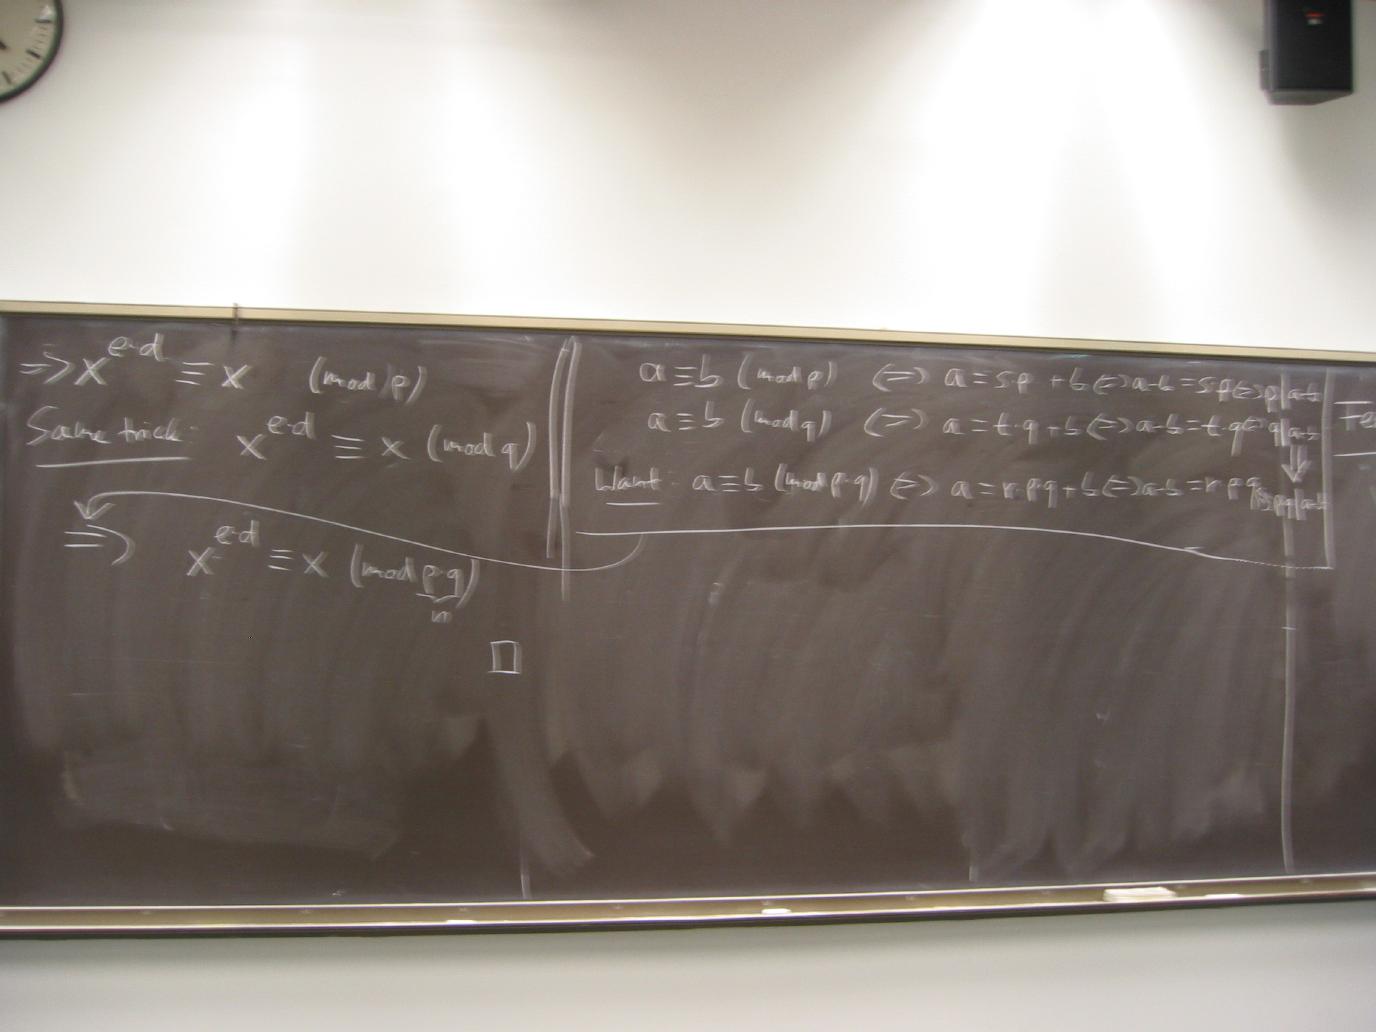 => x^{e·d} ≡ x (mod p)
Same trick: x^{e·d} ≡ x (mod q)
=> x^{e·d} ≡ x (mod p·q)
m
□
a ≡ b (mod p) <=> a = s·p + b <=> a-b = s·p <=> p | a-b
a ≡ b (mod q) <=> a = t·q + b <=> a-b = t·q <=> q | a-b
⇓
Want: a ≡ b (mod p·q) <=> a = r·p·q + b <=> a-b = r·p·q <=> pq | a-b
Fe